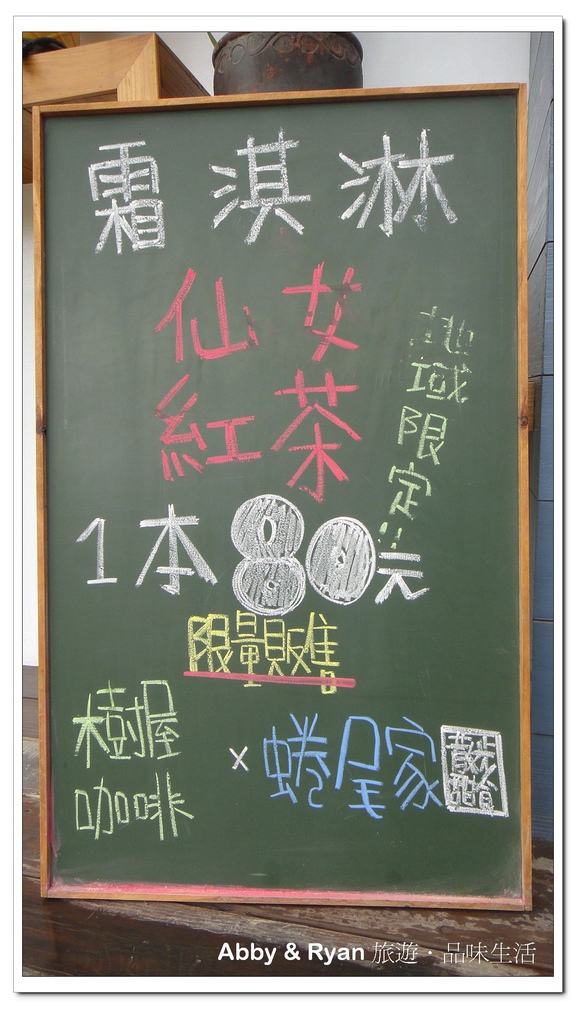 霜淇淋
仙女
紅茶
地域限定!!
1本80元
限量販售
樹屋
咖啡
x 蜷尾家
散步甜食
Abby & Ryan 旅遊·品味生活